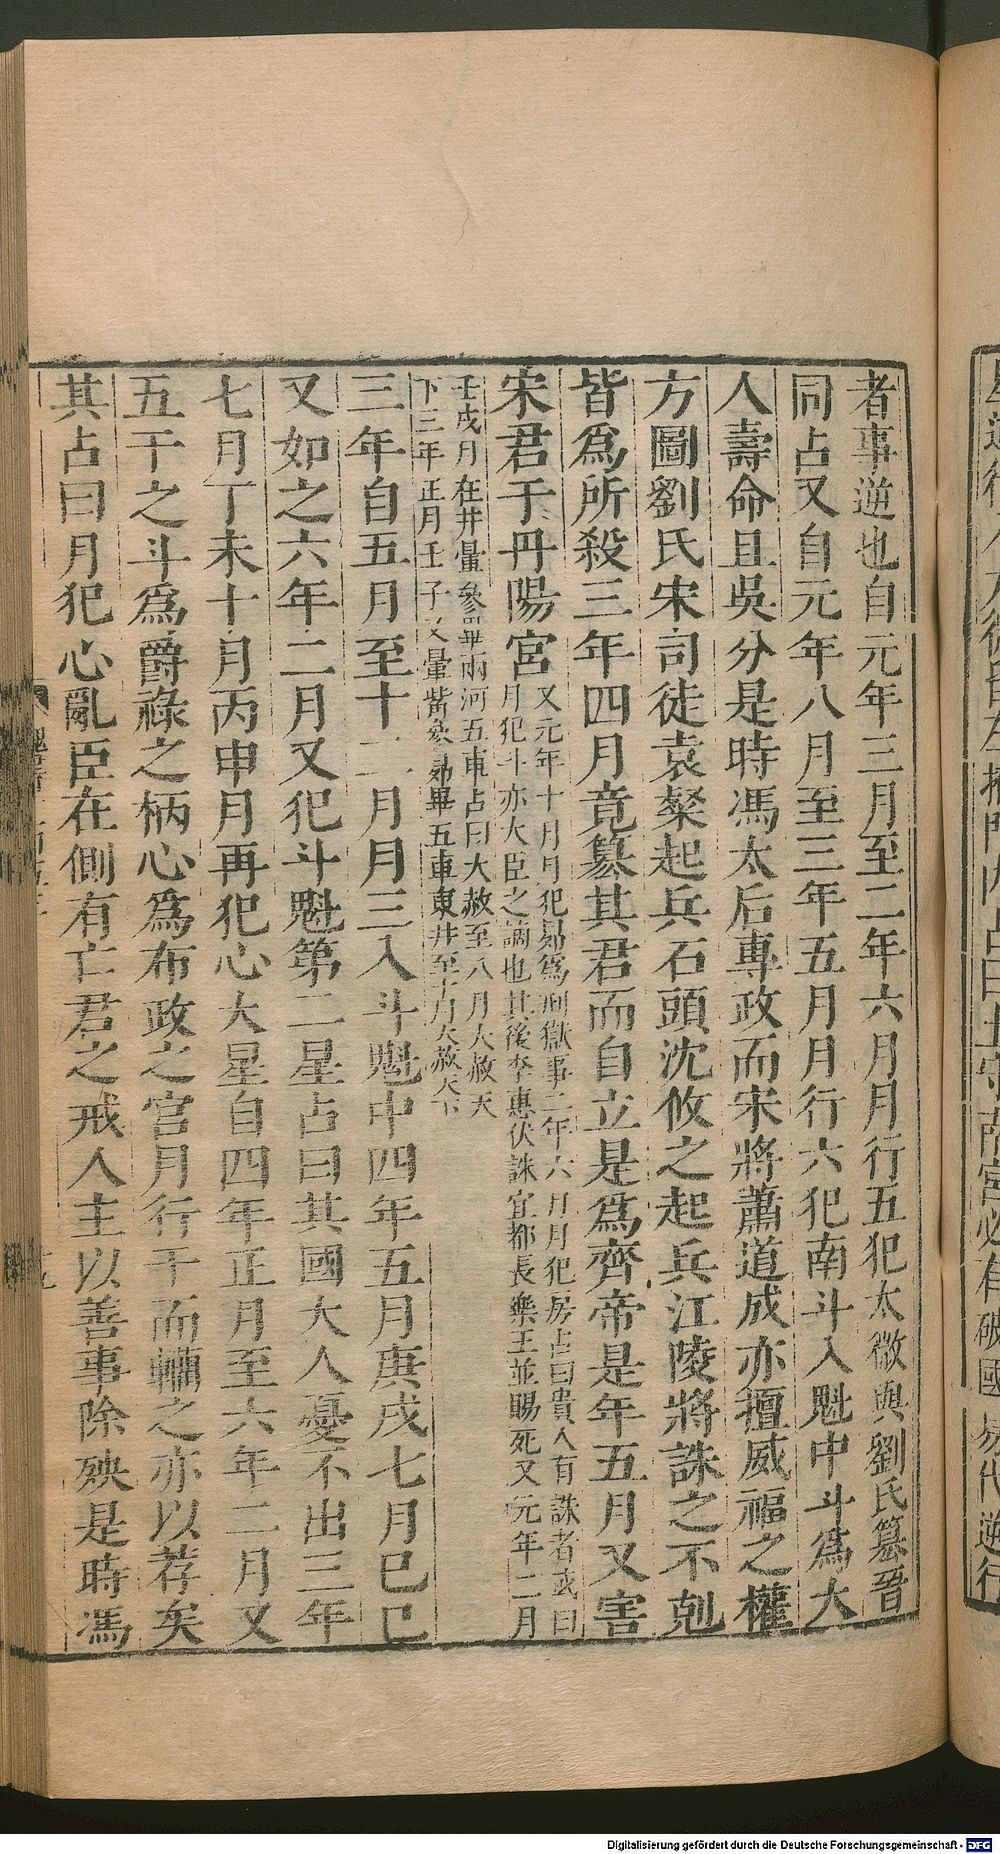 者事逆也自元年三月至二年六月月行五犯太微與劉氏簒晉
同占又自元年八月至三年五月月行六犯南斗入魁中斗爲大
人壽命且吳分是時馮太后專政而宋將蕭道成亦擅威福之權
方圖劉氏宋司徒袁粲起兵石頭沈攸之起兵江陵將誅之不剋
皆爲所殺三年四月竟簒其君而自立是爲齊帝是年五月又害
宋君于丹陽宮
又元年十月月犯昴爲刑獄事二年六月月犯房占曰貴人有誅者或曰
月犯斗亦大臣之謫也其後李惠伏誅宜都長樂王並賜死又元年二月
壬戌月在井暈參畢兩河五車占曰大赦至八月大赦天
下三年正月壬子又暈觜參昴畢五車東井至十月大赦天下
三年自五月至十二月月三入斗魁中四年五月庚戌七月己巳
又如之六年二月又犯斗魁第二星占曰其國大人憂不出三年
七月丁未十月丙申月再犯心大星自四年正月至六年二月又
五干之斗爲爵祿之柄心爲布政之宮月行干而轥之亦以荐矣
其占曰月犯心亂臣在側有亡君之戒人主以善事除殃是時馮
Digitalisierung gefördert durch die Deutsche Forschungsgemeinschaft - DFG